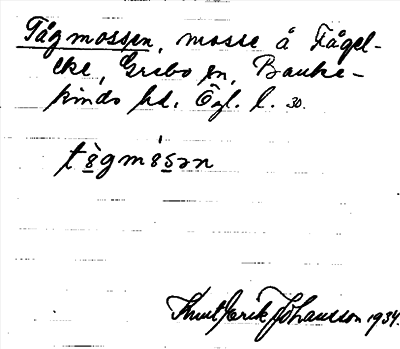 Tågmossen, mosse å Fågel-
eke, Grebo sn, Banke-
kinds hd. Ögl. l. 30.
tågmosən
Knut Erik Johansson 1934.